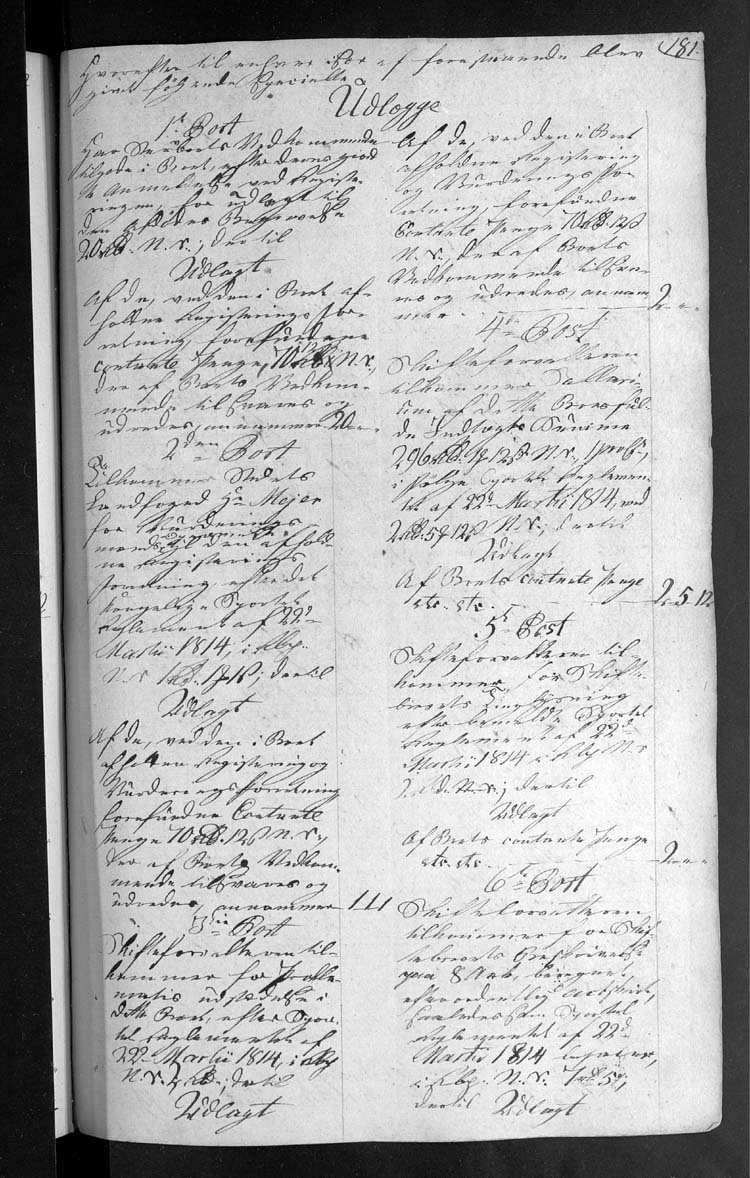 Hvorefter til enhver især af foregaaende blev
givet følgende Specielle
181.
Udlægge
1te Post
Har Sterboets Vedkommende
tilgode i Boet, efter deres giord
te Anmeldelse ved Registe-
ringen, for udlagt til
den afdødes Begravelse
20 rbd. N. V.; der til
Udlagt
Af de, ved den i Boet af-
holdne Registerings for-
retning, forefundne
contante Penge, 70 rbd 12 s N. V.,
der af Boets Vedkom-
mende tilsvares og
udredes, annammer 20 - -
2den Post
Tilkommer Stedets
Landfoged Hr Mejer
for Vurderings
mænd til den afhold-
ne Registerings
forretning, efter det
Kongelige Sportel
Reglement af 22d
Martii 1814, i rbp.
N. V. 1 rbd. 1 s; der til
Udlagt
Af de, ved den i Boet
afholdten Registering og
Vurderingsforretning
forefundne Contante
Penge 70 rbd. 12 s N. V.,
der af Boets Vedkom-
mende tilsvares og
udredes, annammer 1 1 1
3die Post
Skifteforvalteren til-
kommer for Procla-
matis udstædelse i
dette Boe, efter Spor-
tel Reglementet af
22d Martii 1814, i rbp
N. V. 2 rbd; der til
Udlagt
Af de, ved den i Boet
afholdne Registering
og Vurderings for
retning, forefundne
Contante Penge 70 rbd. 12 s
N. V., der af Boets
Vedkommende tilsva-
res og udredes, annam
mer 2 - -
4de Post
Skifteforvalteren
tilkommer Sallari-
um af dette Boes ful-
de Indtægts Summa
296 rbd. 12 s N. V., 1 proC,
i følge Sportel Reglemen-
tet af 22d Martii 1814, med
2 rbd. 5 12 s N. V.; der til
Udlagt
Af Boets contante Penge
etc. etc. 2. 5. 12.
5te Post
Skifteforvalteren til-
kommer for Skifte-
brevets Tinglysning
efter bemeldte Sportel
Reglement af 22d
Martii 1814 i rbp N. V.
2 rbd. N. V.; der til
Udlagt
Af Boets contante Penge
etc. etc. 2 - -
6te Post
Skifteforvalteren
tilkommer for Skif-
tebrevets Beskrivelse
paa 8 Ark, beregnet
efter ordentlig
Sportel
Reglementet af 22d
Martii 1814
i rbp. N. V. 7 rbd 5;
der til Udlagt